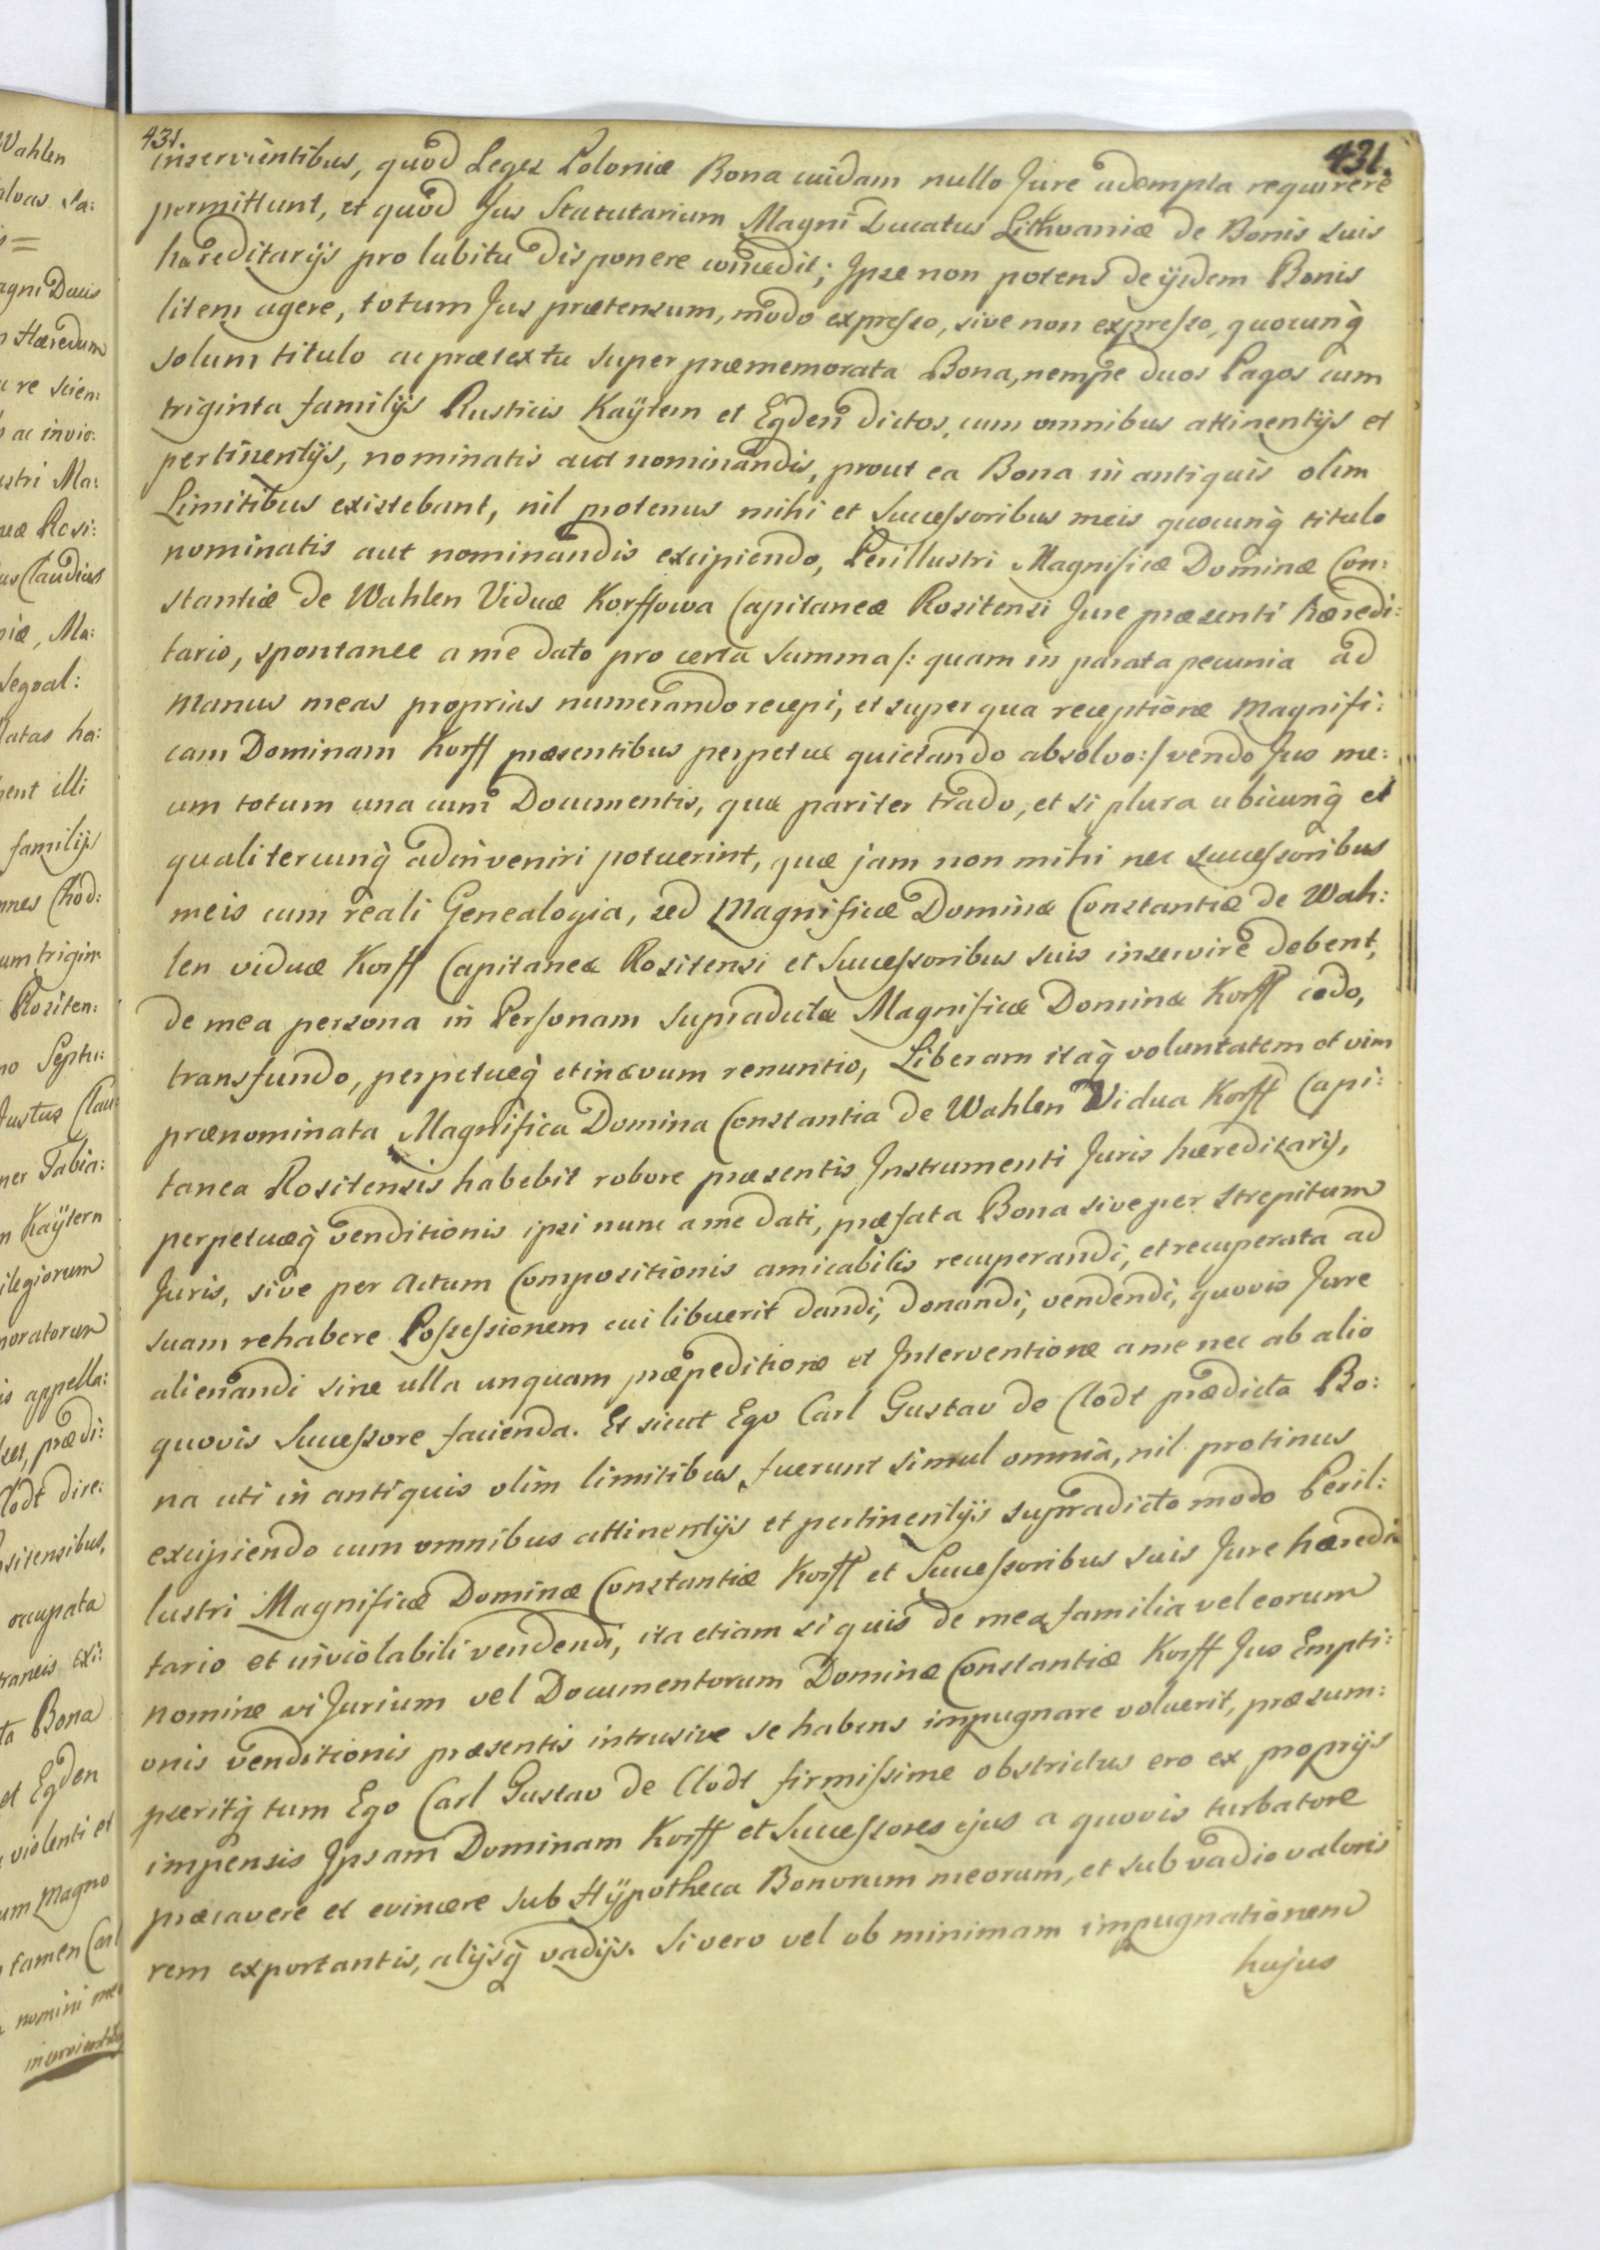 431.
431.
inservientibus, quod Leges Poloniæ Bona cuidam nullo Jure adempta requirere
permittunt, et quod Jus Statutarium Magni Ducatus Lithvaniæ de Bonis suis
hæreditarijs pro lubitu disponere concedit; Ipse non potens de ijsdem Bonis
litem agere, totum Jus prætensum, modo expresso, sive non expresso, quocunq̀
solum titulo ac prætextu super præmemorata Bona, nempe duos Pagos cum
triginta familijs Rusticis Kaÿtern et Egden dictos, cum omnibus attinentijs et
pertinentijs, nominatis aut nominandis, prout ea Bona in antiquis olim
Limitibus existebant, nil protenus mihi et Successoribus meis quocunq̀ titulo
nominatis aut nominandis excipiendo, Perillustri Magnificæ Dominæ Con:
stantiæ de Wahlen Viduæ Korffowa Capitaneæ Rositensi Jure præsenti hæredi:
tario, spontanee a me dato pro certa Summa /: quam in parata pecunia ad
manus meas proprias numerando recepi, et super qua receptione Magnifi:
cam Dominam Korff præsentibus perpetue quietando absolvo :/ vendo Jus me:
um totum una cum Documentis, quæ pariter trado, et si plura ubicunq̀ et
qualitercunq̀ adinveniri potuerint, quæ jam non mihi nec successoribus
meis cum reali Genealogia, sed Magnificæ Dominæ Constantiæ de Wah:
len viduæ Korff Capitaneæ Rositensi et Successoribus suis inservire debent,
de mea persona in Personam supradictæ Magnificæ Dominæ Korff cedo,
transfundo, perpetueq̀ et in ævum renuntio, Liberam itaq̀ voluntatem et vim
prænominata Magnifica Domina Constantia de Wahlen Vidua Korff Capi:
tanea Rositensis habebit robore præsentis Instrumenti Juris hæreditarij,
perpetuæq̀ venditionis ipsi nunc a me dati, præfata Bona sive per strepitum
Juris, sive per actum Compositionis amicabilis recuperandi, et recuperata ad
suam rehabere Possessionem cui libuerit dandi, donandi, vendendi, quovis Jure
alienandi sine ulla unquam præpeditione et Interventione a me nec ab alio
quovis Successore facienda. Et sicut Ego Carl Gustav de Clodt prædicta Bo:
na uti in antiquis olim limitibus fuerunt simul omnia, nil protinus
excipiendo cum omnibus attinentijs et pertinentijs supradicto modo Peril:
lustri Magnificæ Dominæ Constantiæ Korff et Successoribus suis Jure hæredi
tario et inviolabili vendendi, ita etiam si quis de mea familia vel eorum
nomine vi Jurium vel Documentorum Dominæ Constantiæ Korff Jus Empti:
onis venditionis præsentis intrusive se habens impugnare voluerit, præsum:
pseritq̀ tum Ego Carl Gustav de Clodt firmissime obstrictus ero ex proprijs
impensis Ipsam Dominam Korff et Successores ejus a quovis turbatore
præcavere et evincere sub Hÿpotheca Bonorum meorum, et sub vadio valoris
rem exportantis, alijsq̀ vadijs. Si vero vel ob minimam impugnationem
hujus